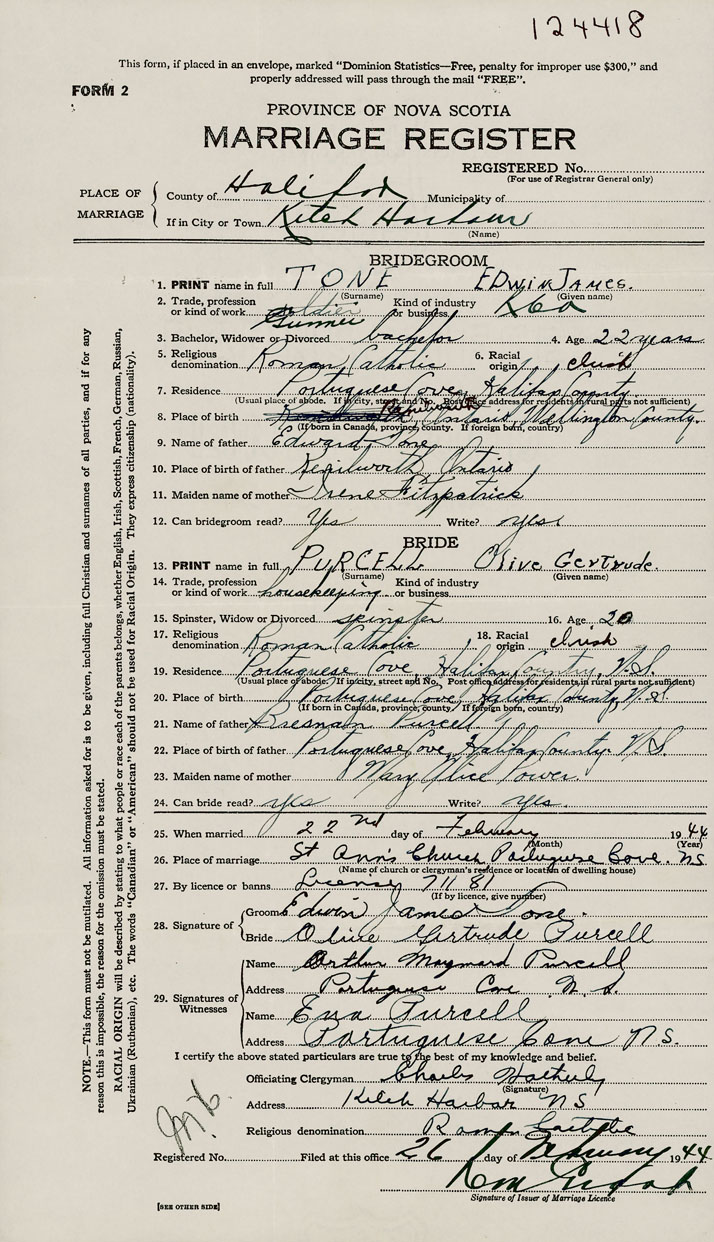 124418
This form, if placed in an envelope, marked “Dominion Statistics—Free, penalty for improper use $300,” and
properly addressed will pass through the mail “FREE”.
FORM 2
PROVINCE OF NOVA SCOTIA
MARRIAGE REGISTER
REGISTERED No.
(For use of Registrar General only)
PLACE OF MARRIAGE
County of Halifax Municipality of
If in City or Town Ketch Harbour
(Name)
BRIDEGROOM
1. PRINT name in full TONE EDWIN JAMES.
(Surname) (Given name)
2. Trade, profession or kind of work Gunner Kind of industry or business
3. Bachelor, Widower or Divorced bachelor 4. Age 22 years
5. Religious denomination Roman Catholic 6. Racial origin Irish
7. Residence Portuguese Cove, Halifax County.
(Usual place of abode. If in city, street and No. Post office address for residents in rural parts not sufficient)
8. Place of birth Kenilworth Ontario Wellington County.
(If born in Canada, province, county. If foreign born, country)
9. Name of father Edward Tone
10. Place of birth of father Kenilworth, Ontario
11. Maiden name of mother Irene Fitzpatrick
12. Can bridegroom read? Yes Write? yes.
BRIDE
13. PRINT name in full PURCELL Olive Gertrude.
(Surname) (Given name)
14. Trade, profession or kind of work housekeeping Kind of industry or business
15. Spinster, Widow or Divorced spinster 16. Age 20
17. Religious denomination Roman Catholic 18. Racial origin Irish
19. Residence Portuguese Cove, Halifax County, N.S.
(Usual place of abode. If in city, street and No. Post office address for residents in rural parts not sufficient)
20. Place of birth Portuguese Cove, Halifax County, N.S.
(If born in Canada, province, county. If foreign born, country)
21. Name of father Purcell
22. Place of birth of father Portuguese Cove, Halifax County. N.S.
23. Maiden name of mother Mary Alice Power.
24. Can bride read? yes Write? yes.
25. When married 22nd day of February 1944
(Month) (Year)
26. Place of marriage St Ann's Church, Portuguese Cove. NS
(Name of church or clergyman's residence or location of dwelling house)
27. By licence or banns License 71181
(If by licence, give number)
28. Signature of
Groom Edwin James Tone.
Bride Olive Gertrude Purcell
29. Signatures of Witnesses
Name Arthur Maynard Purcell
Address Portuguese Cove N.S.
Name Ena Purcell
Address Portuguese Cove N.S.
I certify the above stated particulars are true to the best of my knowledge and belief.
Officiating Clergyman Charles
(Signature)
Address Ketch Harbor NS
Religious denomination Roman Catholic
Registered No. Filed at this office 26 day of February 1944
Signature of Issuer of Marriage Licence
[SEE OTHER SIDE]
NOTE.—This form must not be mutilated. All information asked for is to be given, including full Christian and surnames of all parties, and if for any
reason this is impossible, the reason for the omission must be stated.
RACIAL ORIGIN will be described by stating to what people or race each of the parents belongs, whether English, Irish, Scottish, French, German, Russian,
Ukrainian (Ruthenian), etc. The words “Canadian” or “American” should not be used for Racial Origin. They express citizenship (nationality).